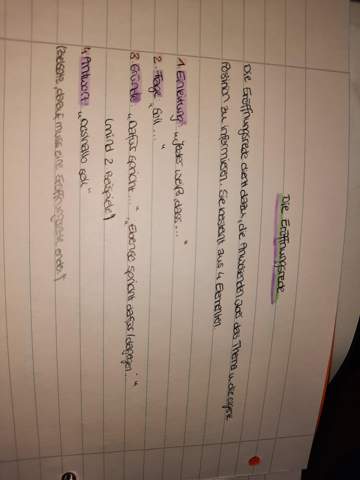 Die Eröffnungsrede
Die Eröffnungsrede dient dazu, die Anwesenden über das Thema u. die eigene
Position zu informieren. Sie besteht aus 4 Elementen.
1. Einleitung „Jeder weiß, dass ..."
2. Frage „Soll ..."
3. Gründe „Dafür spricht ...", „Ebenso spricht dafür/dagegen ..."
(mind. 2 Beispiele)
4. Antwort „Deshalb soll"
(Beispiel, darauf muss eine Eröffnungsrede enden)